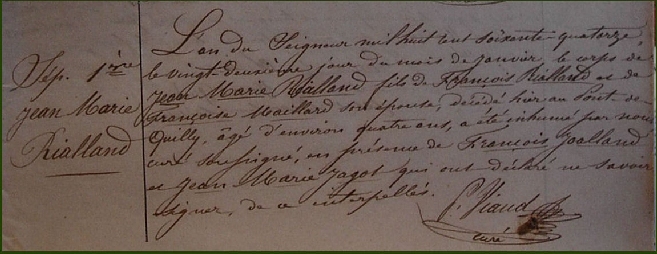 Sep. 1ère
Jean Marie
Rialland
L'an du Seigneur mil huit cent soixante-quatorze,
le vingt-deuxième jour du mois de janvier, le corps de
Jean Marie Rialland fils de François Rialland et de
Françoise Maillard son épouse, décédé hier au Pont-de-
Quilly, âgé d'environ quatre ans, a été inhumé par nous
curé soussigné, en présence de François Joalland
et Jean Marie Jagot qui ont déclaré ne savoir
signer, de ce interpellés.
P. Viaud
curé